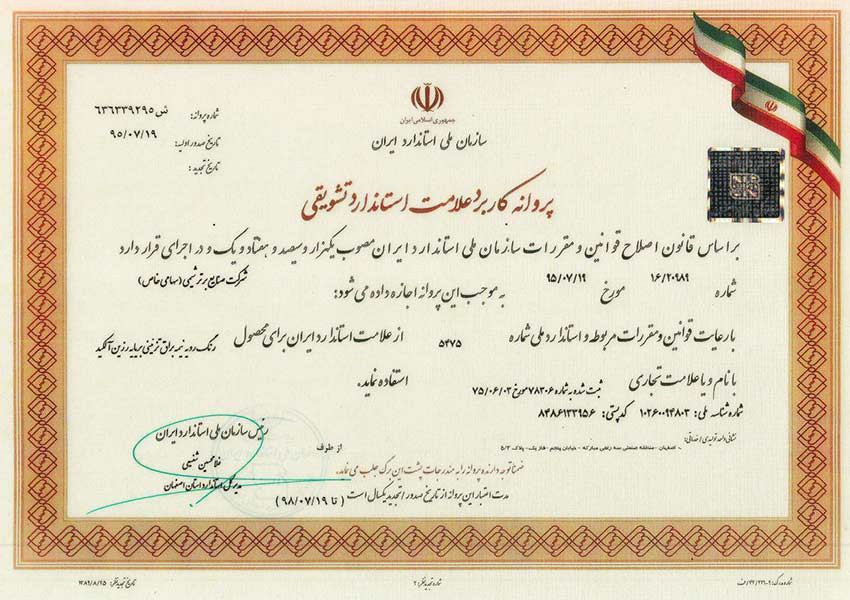 جمهوری اسلامی ایران
سازمان ملی استاندارد ایران
شماره پروانه: ش ۶۳۶۳۳۹۲۹۵
تاریخ صدور اولیه: ۹۵/۰۷/۱۹
تاریخ تجدید:
پروانه کاربرد علامت استاندارد تشویقی
براساس قانون اصلاح قوانین و مقررات سازمان ملی استاندارد ایران مصوب یکهزار و سیصد و هفتاد و یک و در اجرای قرار داد
شماره ۱۶/۲۰۹۸۹ مورخ ۹۵/۰۷/۱۹ به موجب این پروانه اجازه داده می شود: شرکت صنایع برتر شیمی (سهامی خاص)
با رعایت قوانین و مقررات مربوطه و استاندارد ملی شماره ۵۴۷۵ از علامت استاندارد ایران برای محصول رنگ رویه نیمه براق تزئینی برپایه رزین آلکید
با نام و یا علامت تجاری ثبت شده به شماره ۷۸۳۰۶ مورخ ۷۵/۰۶/۰۳ استفاده نماید.
شماره شناسه ملی: ۱۰۲۶۰۰۹۴۸۰۳ کدپستی: ۸۴۸۶۱۳۳۹۵۶
نشانی واحد تولیدی/خدماتی:
- اصفهان - منطقه صنعتی سه راهی مبارکه - خیابان پنجم - فاز یک - پلاک ۵/۳
رئیس سازمان ملی استاندارد ایران
از طرف
غلامحسین شفیعی
مدیر کل استاندارد استان اصفهان
ضمناً توجه دارنده پروانه را به مندرجات پشت این برگ جلب می نماید.
مدت اعتبار این پروانه از تاریخ صدور / تجدید یکسال است (تا ۹۸/۰۷/۱۹)
شماره تجدید نظر: ۲